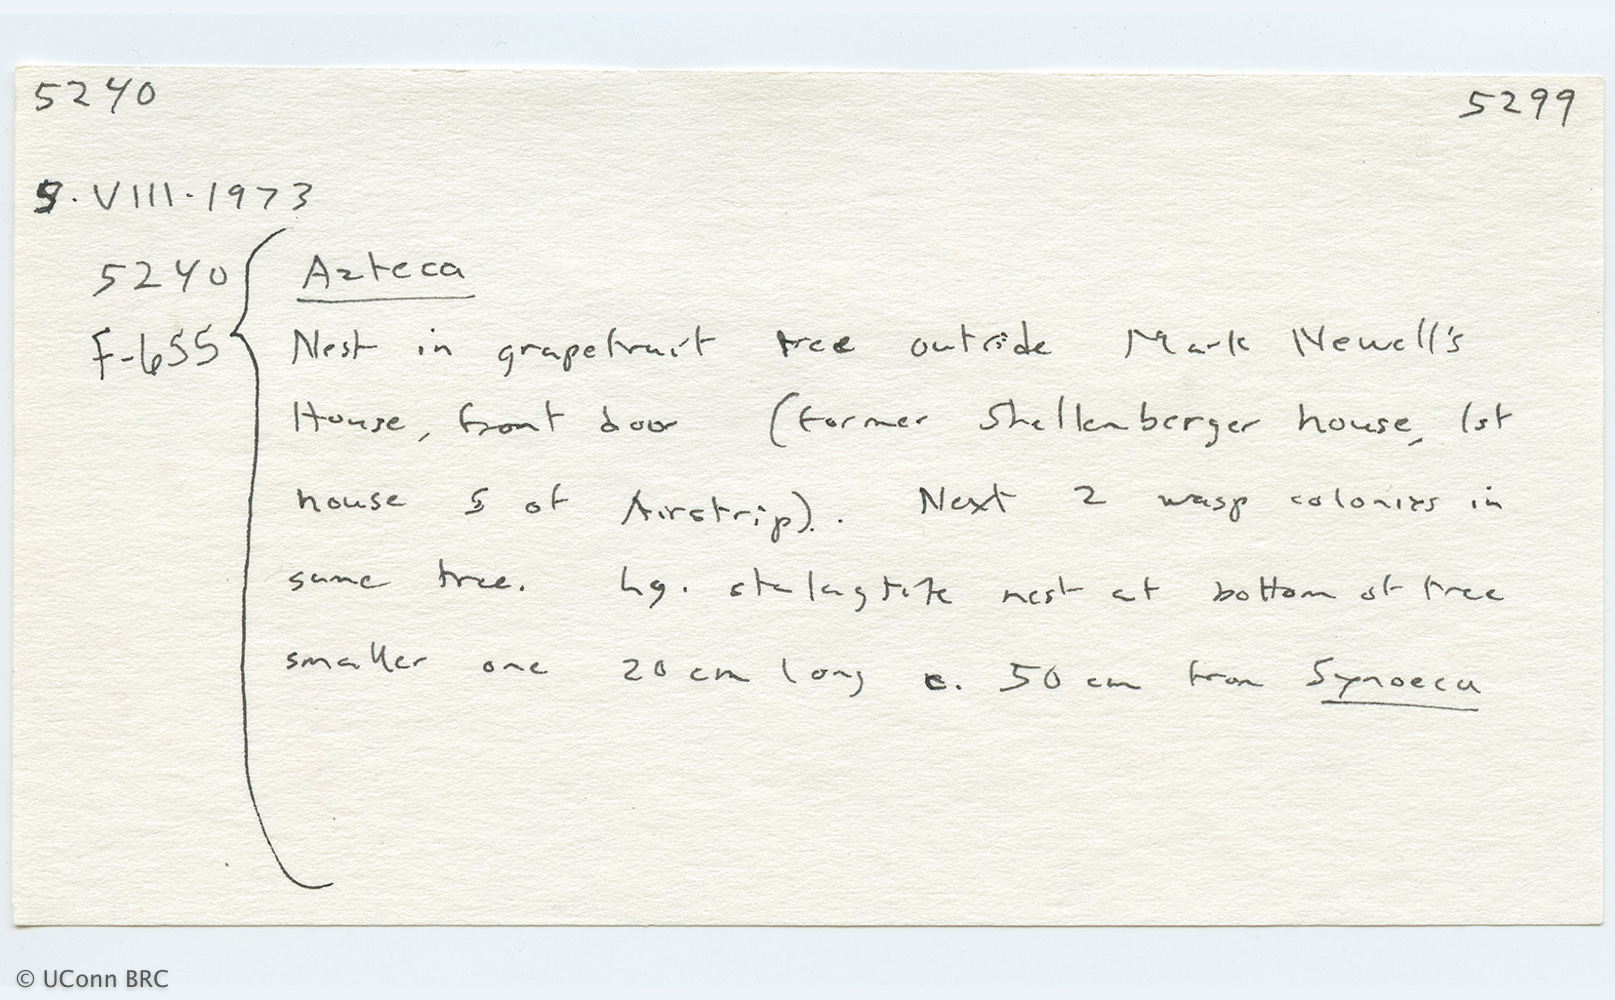 5240 5299
9.VIII.1973
5240 Azteca
F-655 Nest in grapefruit tree outside Mark Newell's
House, front door (former Shellenberger house, 1st
house S of Airstrip). Next 2 wasp colonies in
same tree. Lg. stalagtite nest at bottom of tree
smaller one 20 cm long c. 50 cm from Synoeca
© UConn BRC